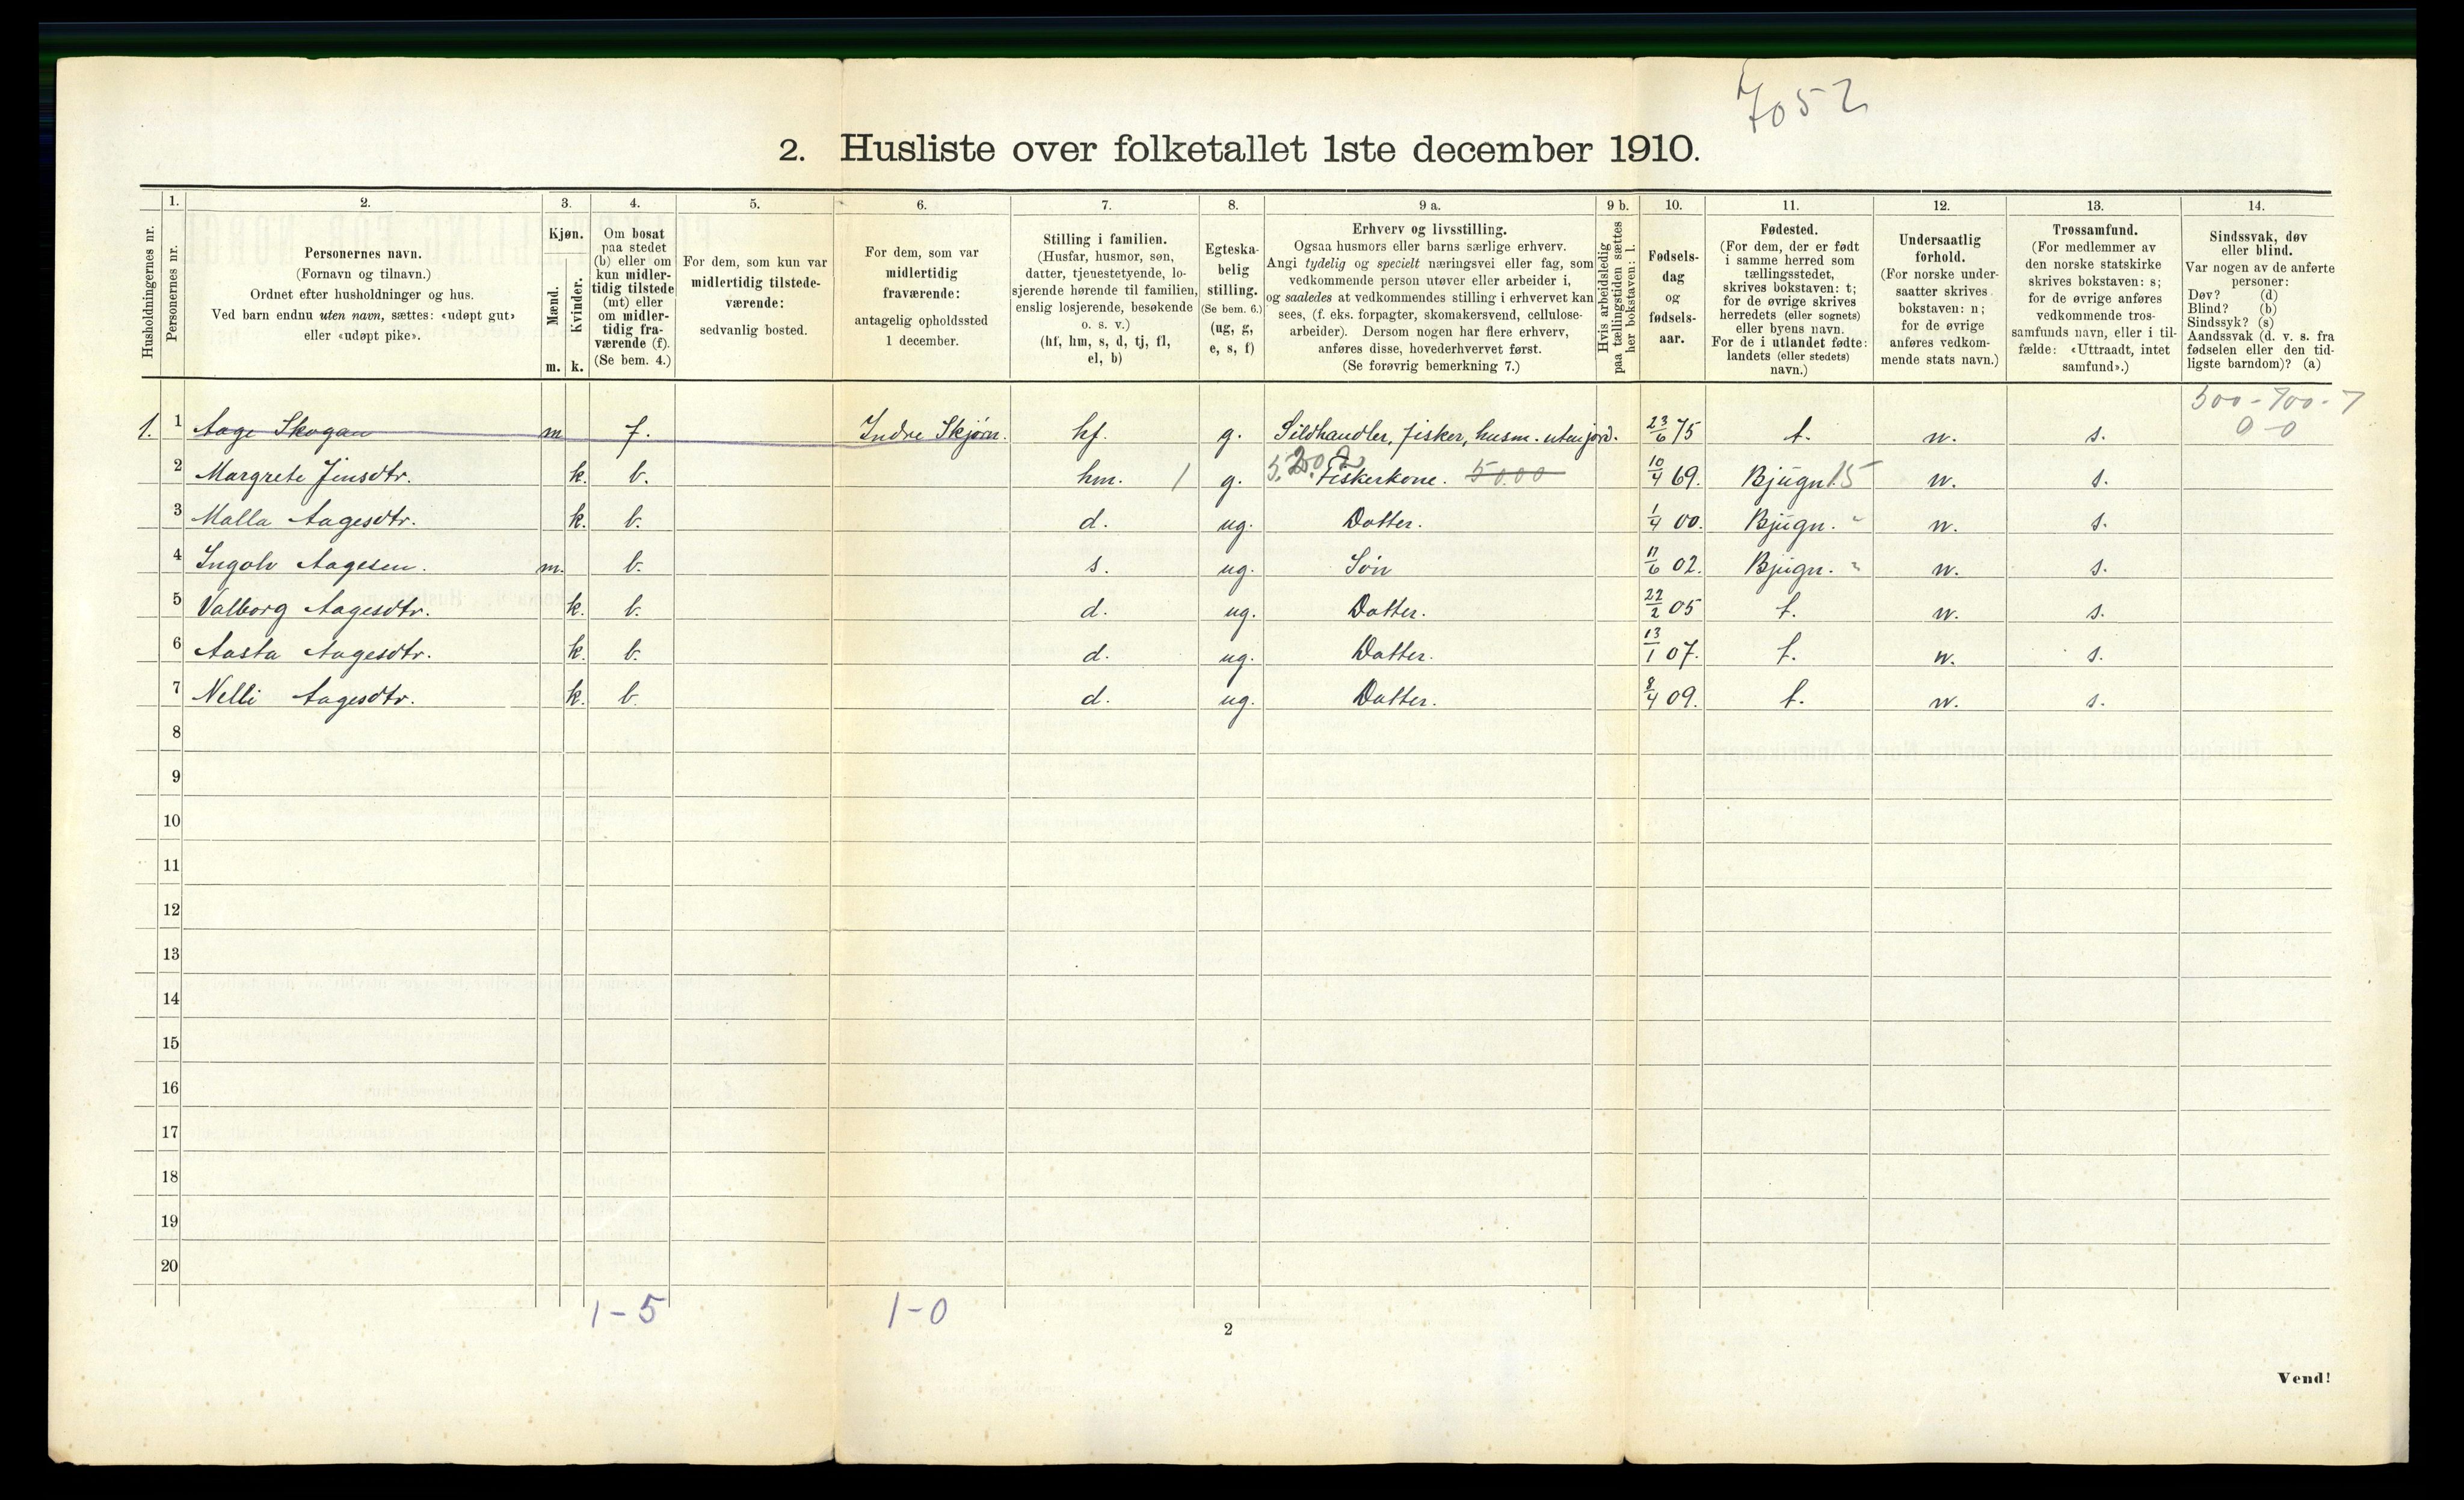 7052
2. Husliste over folketallet 1ste december 1910.
Husholdningernes nr.
1.
Personernes nr.
2.
Personernes navn.
(Fornavn og tilnavn.)
Ordnet efter husholdninger og hus.
Ved barn endnu uten navn, sættes: «udøpt gut»
eller «udøpt pike».
3.
Kjøn.
Mænd.
Kvinder.
m. k.
4.
Om bosat
paa stedet
(b) eller om
kun midler-
tidig tilstede
(mt) eller
om midler-
tidig fra-
værende (f).
(Se bem. 4.)
5.
For dem, som kun var
midlertidig tilstede-
værende:
sedvanlig bosted.
6.
For dem, som var
midlertidig
fraværende:
antagelig opholdssted
1 december.
7.
Stilling i familien.
(Husfar, husmor, søn,
datter, tjenestetyende, lo-
sjerende hørende til familien,
enslig losjerende, besøkende
o. s. v.)
(hf, hm, s, d, tj, fl,
el, b)
8.
Egteska-
belig
stilling.
(Se bem. 6.)
(ug, g,
e, s, f)
9 a.
Erhverv og livsstilling.
Ogsaa husmors eller barns særlige erhverv.
Angi tydelig og specielt næringsvei eller fag, som
vedkommende person utøver eller arbeider i,
og saaledes at vedkommendes stilling i erhvervet kan
sees, (f. eks. forpagter, skomakersvend, cellulose-
arbeider). Dersom nogen har flere erhverv,
anføres disse, hovederhvervet først.
(Se forøvrig bemerkning 7.)
9 b.
Hvis arbeidsledig
paa tællingstiden sættes
her bokstaven: l.
10.
Fødsels-
dag
og
fødsels-
aar.
11.
Fødested.
(For dem, der er født
i samme herred som
tællingsstedet,
skrives bokstaven: t;
for de øvrige skrives
herredets (eller sognets)
eller byens navn.
For de i utlandet fødte:
landets (eller stedets)
navn.)
12.
Undersaatlig
forhold.
(For norske under-
saatter skrives
bokstaven: n;
for de øvrige
anføres vedkom-
mende stats navn.)
13.
Trossamfund.
(For medlemmer av
den norske statskirke
skrives bokstaven: s;
for de øvrige anføres
vedkommende tros-
samfunds navn, eller i til-
fælde: «Uttraadt, intet
samfund».)
14.
Sindssvak, døv
eller blind.
Var nogen av de anførte
personer:
Døv? (d)
Blind? (b)
Sindssyk? (s)
Aandssvak (d. v. s. fra
fødselen eller den tid-
ligste barndom)? (a)
500-700-7
0-0
1. 1 Aage Skogan m f. Indre Skjørn. hf. g. Sildhandler, fisker, husm. uten jord. 23/6 75 t. n. s.
2 Margrete Jensdtr. k. b. hm. 1 g. Fiskerkone. 5000 10/4 69. Bjugn 15 n. s.
3 Malla Aagesdtr. k. b. d. ug. Datter. 1/4 00. Bjugn. " n. s.
4 Ingolv Aagesen. m. b. s. ug. Søn 11/6 02. Bjugn. " n. s.
5 Valborg Aagesdtr. k. b. d. ug. Datter. 22/2 05 t. n. s.
6 Aasta Aagesdtr. k. b. d. ug. Datter. 13/1 07. t. n. s.
7 Nelli Aagesdtr. k. b. d. ug. Datter. 8/4 09. t. n. s.
8
9
10
11
12
13
14
15
16
17
18
19
20
1-5 1-0
2
Vend!